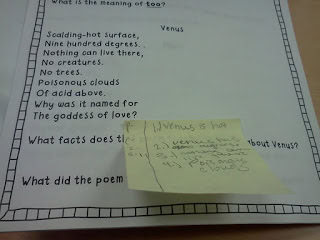 What is the meaning of too?
Venus
Scalding-hot surface,
Nine hundred degrees.
Nothing can live there,
No creatures.
No trees.
Poisonous clouds
Of acid above.
Why was it named for
The goddess of love?
What facts does th
about Venus?
What did the poem
1) Venus is hot
2.) Venus has
3.)
4.) Poisonous
clouds